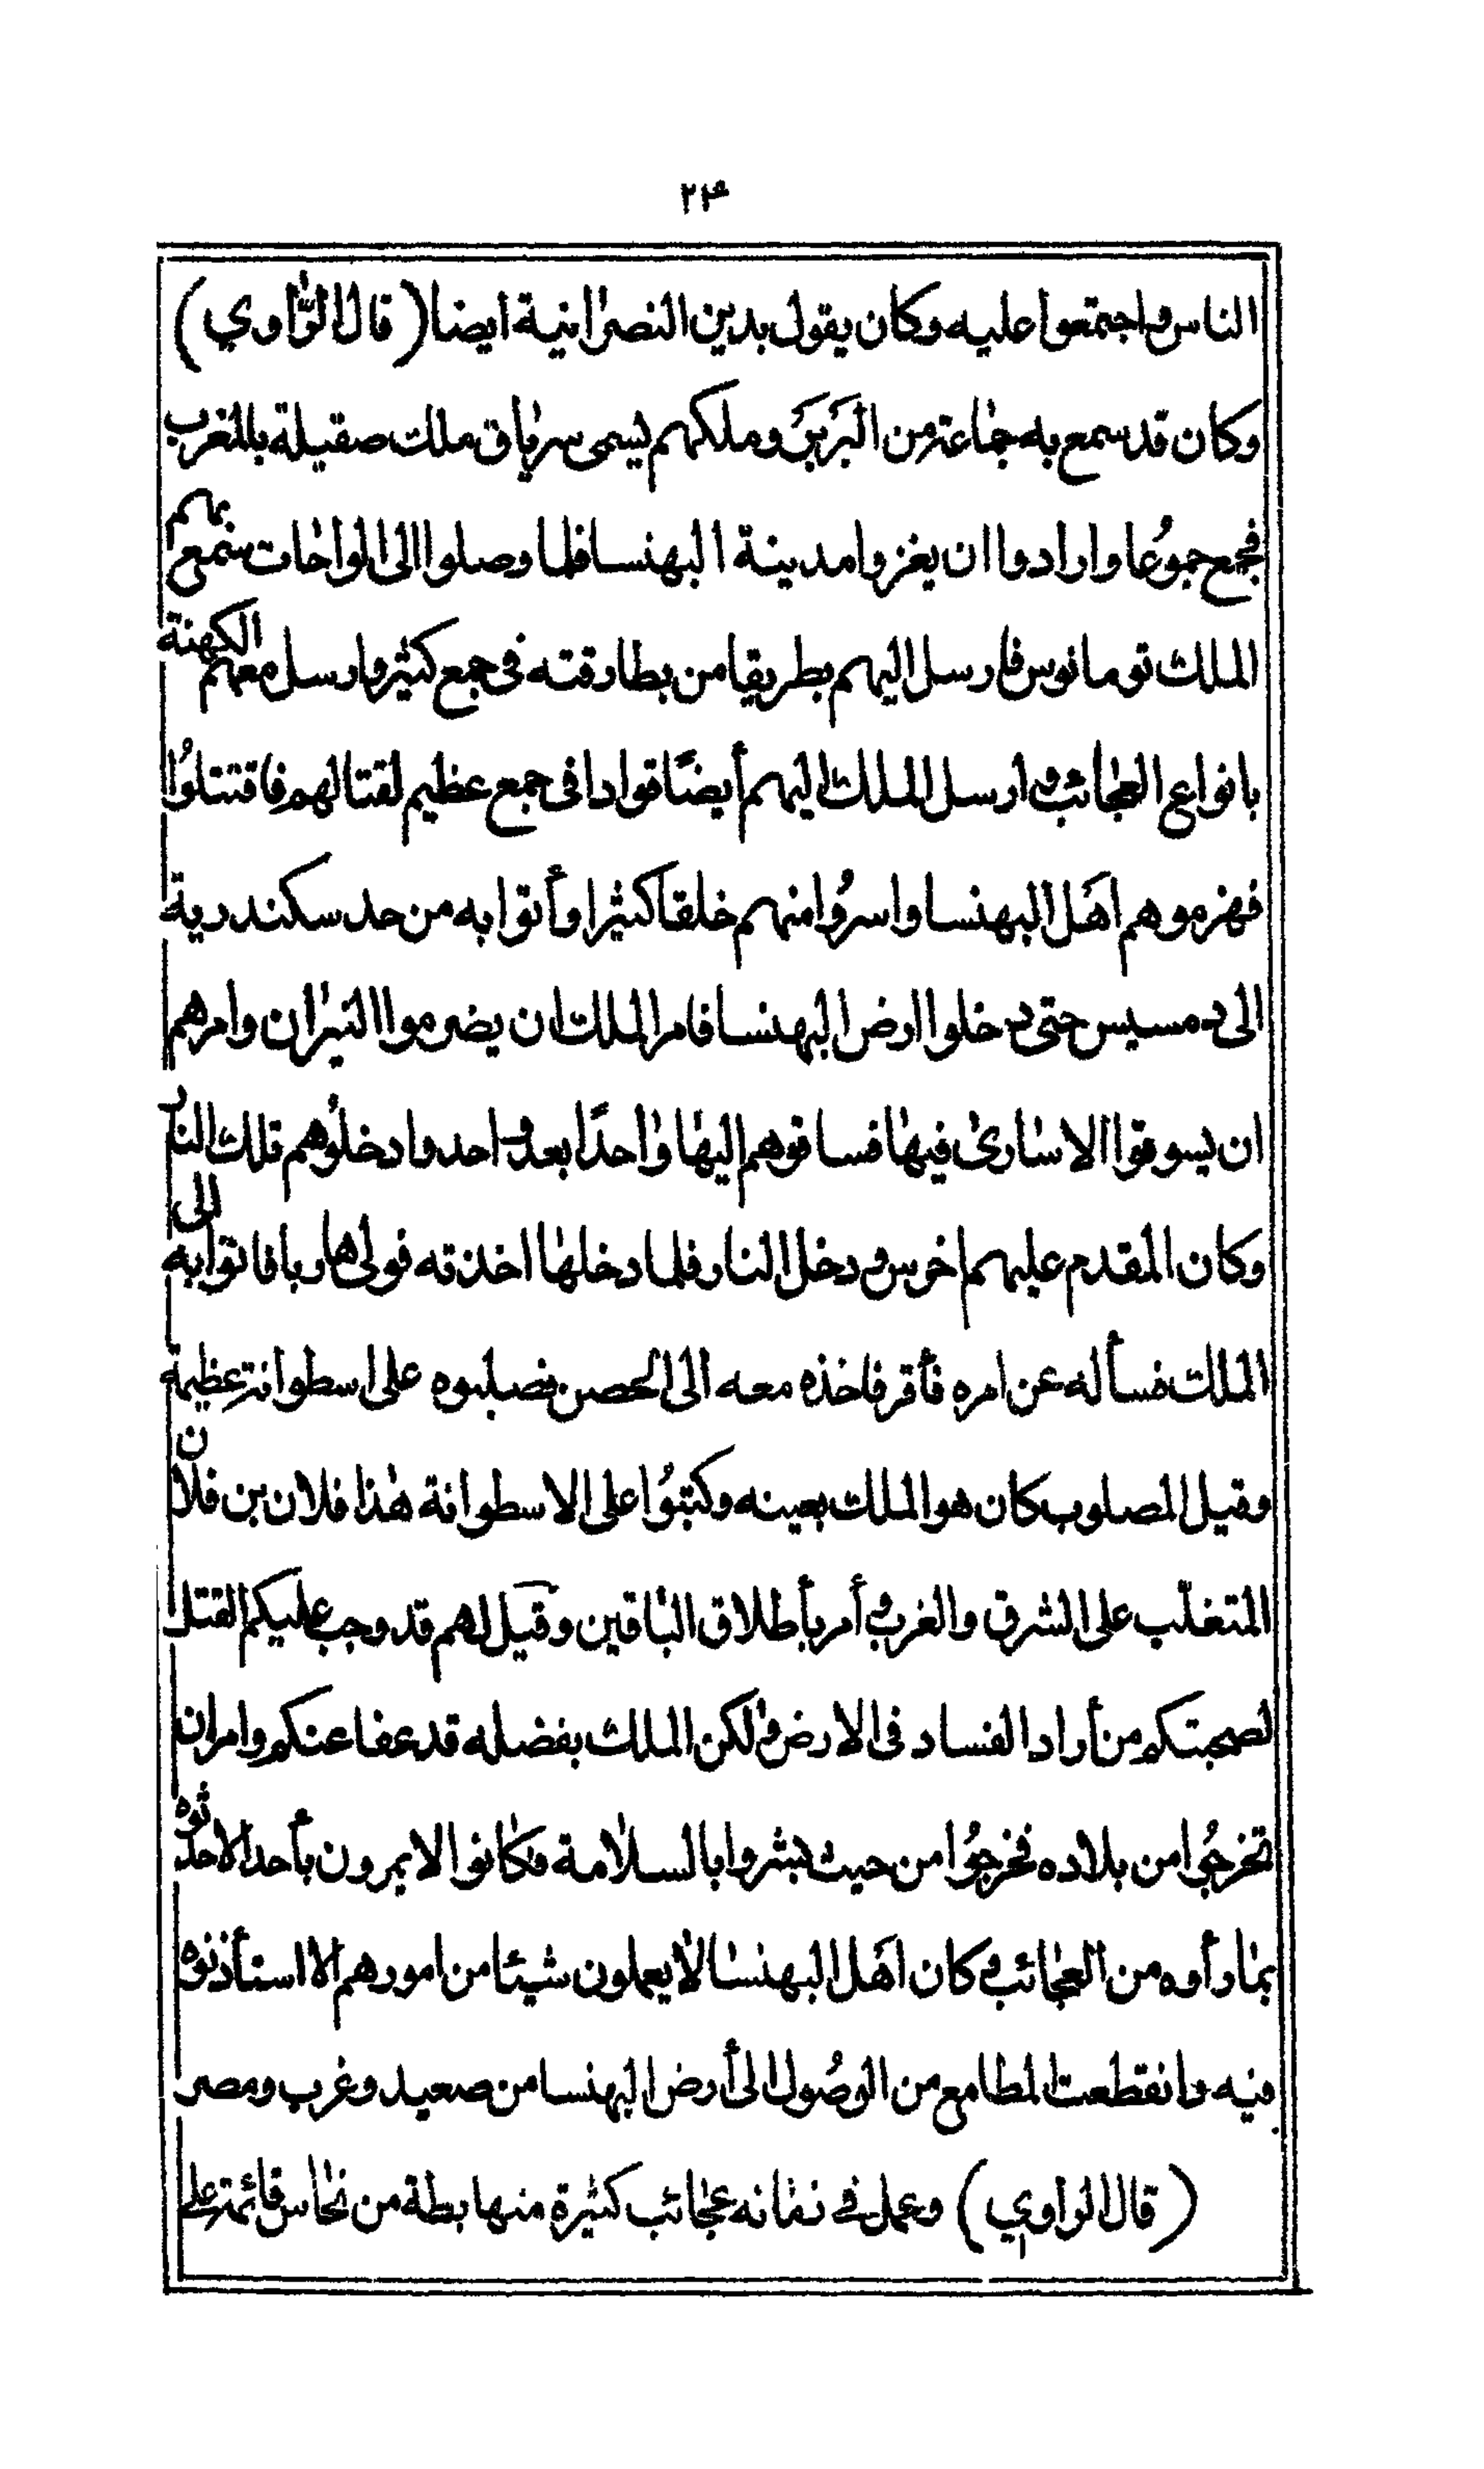 ٢٤
الناس واجتمعوا عليه وكان يقول بدين النصرانية ايضا ( قال الرّاوي )
وكان قد سمع به جماعة من البَربَر وملكهم يسمى سرياق ملك صقيلة بالمغرب
فجمع جموُعا وارادوا ان يغزوا مدينة البهنسا فلما وصلوا الى الواحات سمع بهم
الملك توما نوس فارسل اليهم بطريقا من بطارقته فى جمع كثير وارسل معهم الكهنة
بانواع العجائب وارسل الملك اليهم أيضًا قوادا فى جمع عظيم لقتالهم فاقتتلوُا
فهزموهم اهَل البهنسا واسروُا منهم خلقا كثيرا وأتوا به من حد سكندرية
الى دمسيس حتى دخلوا ارض البهنسا فامر الملك ان يضرموا النيران وامرهم
ان يسوقوا الاسارىٰ فيها فساقوهم اليها واحدًا بعد واحد وادخلوُهم تلك النار
وكان المقدم عليهم اخرس ودخل النار فلما دخلها اخذته فولى هاربا فاتوا به الى
الملك فسأله عن امره فأقر فاخذه معه الى الحصن فصلبوه على اسطوانة عظيمة
وقيل المصلوب كان هو الملك بعينه وكتبوُا على الاسطوانة هٰذا فلان بن فلان
المتغلّب على الشرق والغرب وأمر بأطلاق الباقين وقيل لهم قد وجب عليكم القتل
لصحبتكم من أراد الفساد فى الارض ولكن الملك بفضله قد عفا عنكم وامر ان
تخرجُوا من بلاده فخرجُوا من حيث بشروا بالسلامة فكانوا لا يمرون بأحد الا حدثوه
بما رأوه من العجائب وكان اهَل البهنسا لا يعملون شيئا من امورهم الا استأذنوه
فيه وانقطعت المطامع من الوصُول الى أرض البهنسا من صعيد وغرب ومصر
( قال الراوي ) وعمل فى زمانه عجائب كثيرة منها بطة من نحاس قائمة على